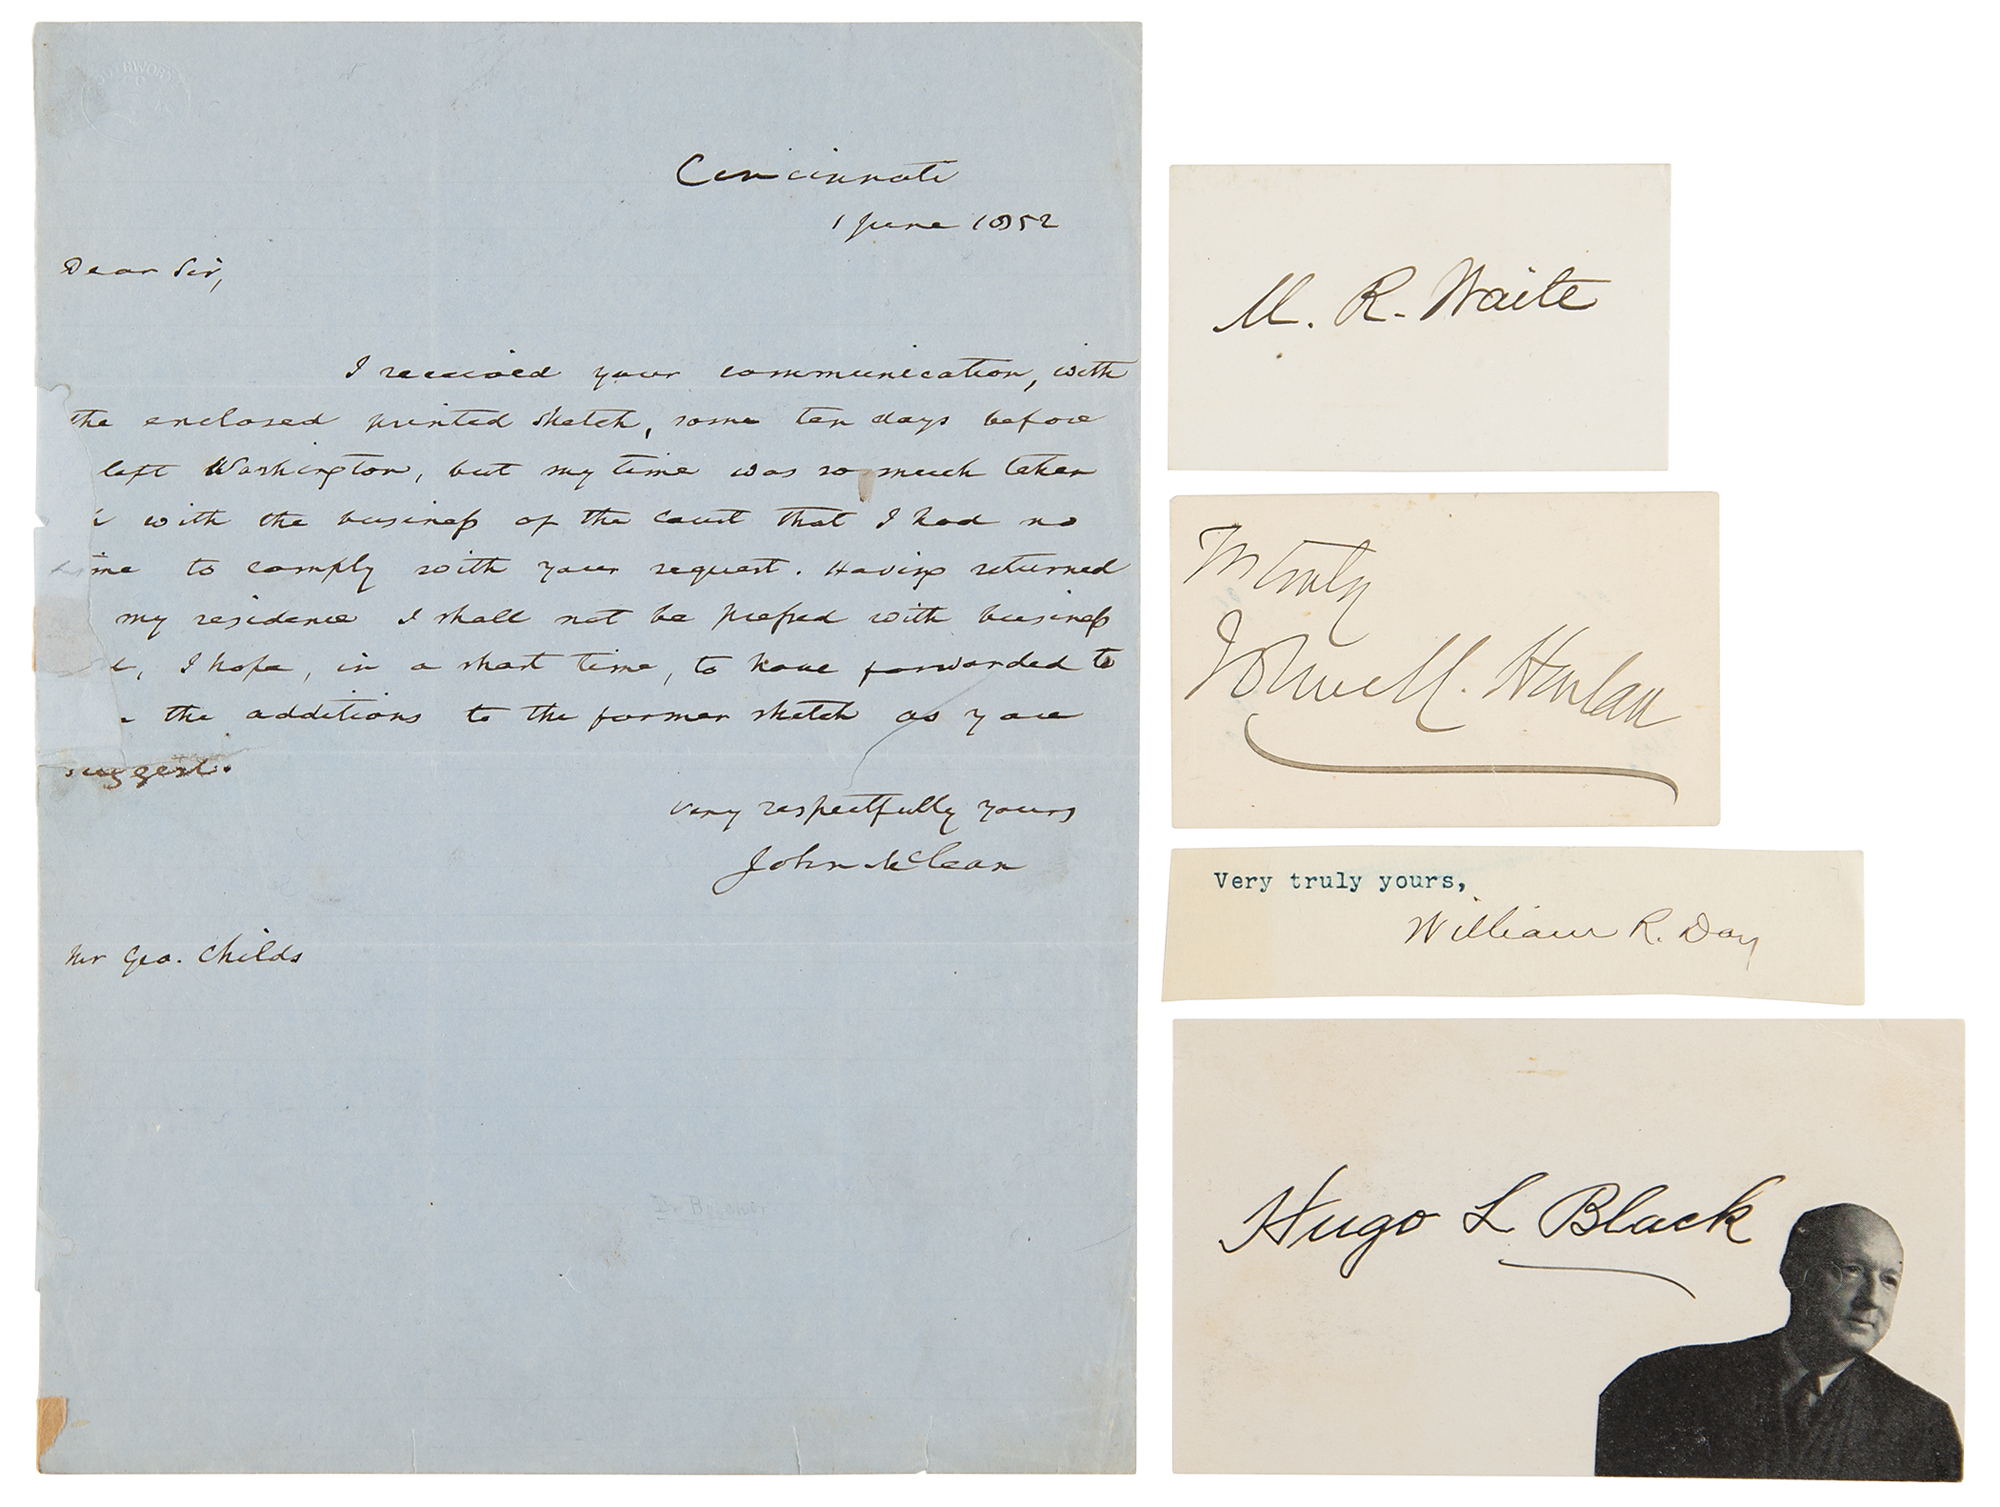 Cincinnati
1 June 1852
Dear Sir,
I received your communication, with
the enclosed printed sketch, some ten days before
left Washington, but my time was so much taken
with the business of the Court that I had no
time to comply with your request. Having returned
my residence I shall not be pressed with business
I hope, in a short time, to have forwarded to
the additions to the former sketch as you
suggest.
Very respectfully yours
John McLean
Mr Geo. Childs
M. R. Waite
truly
John M. Harlan
Very truly yours,
William R. Day
Hugo L Black